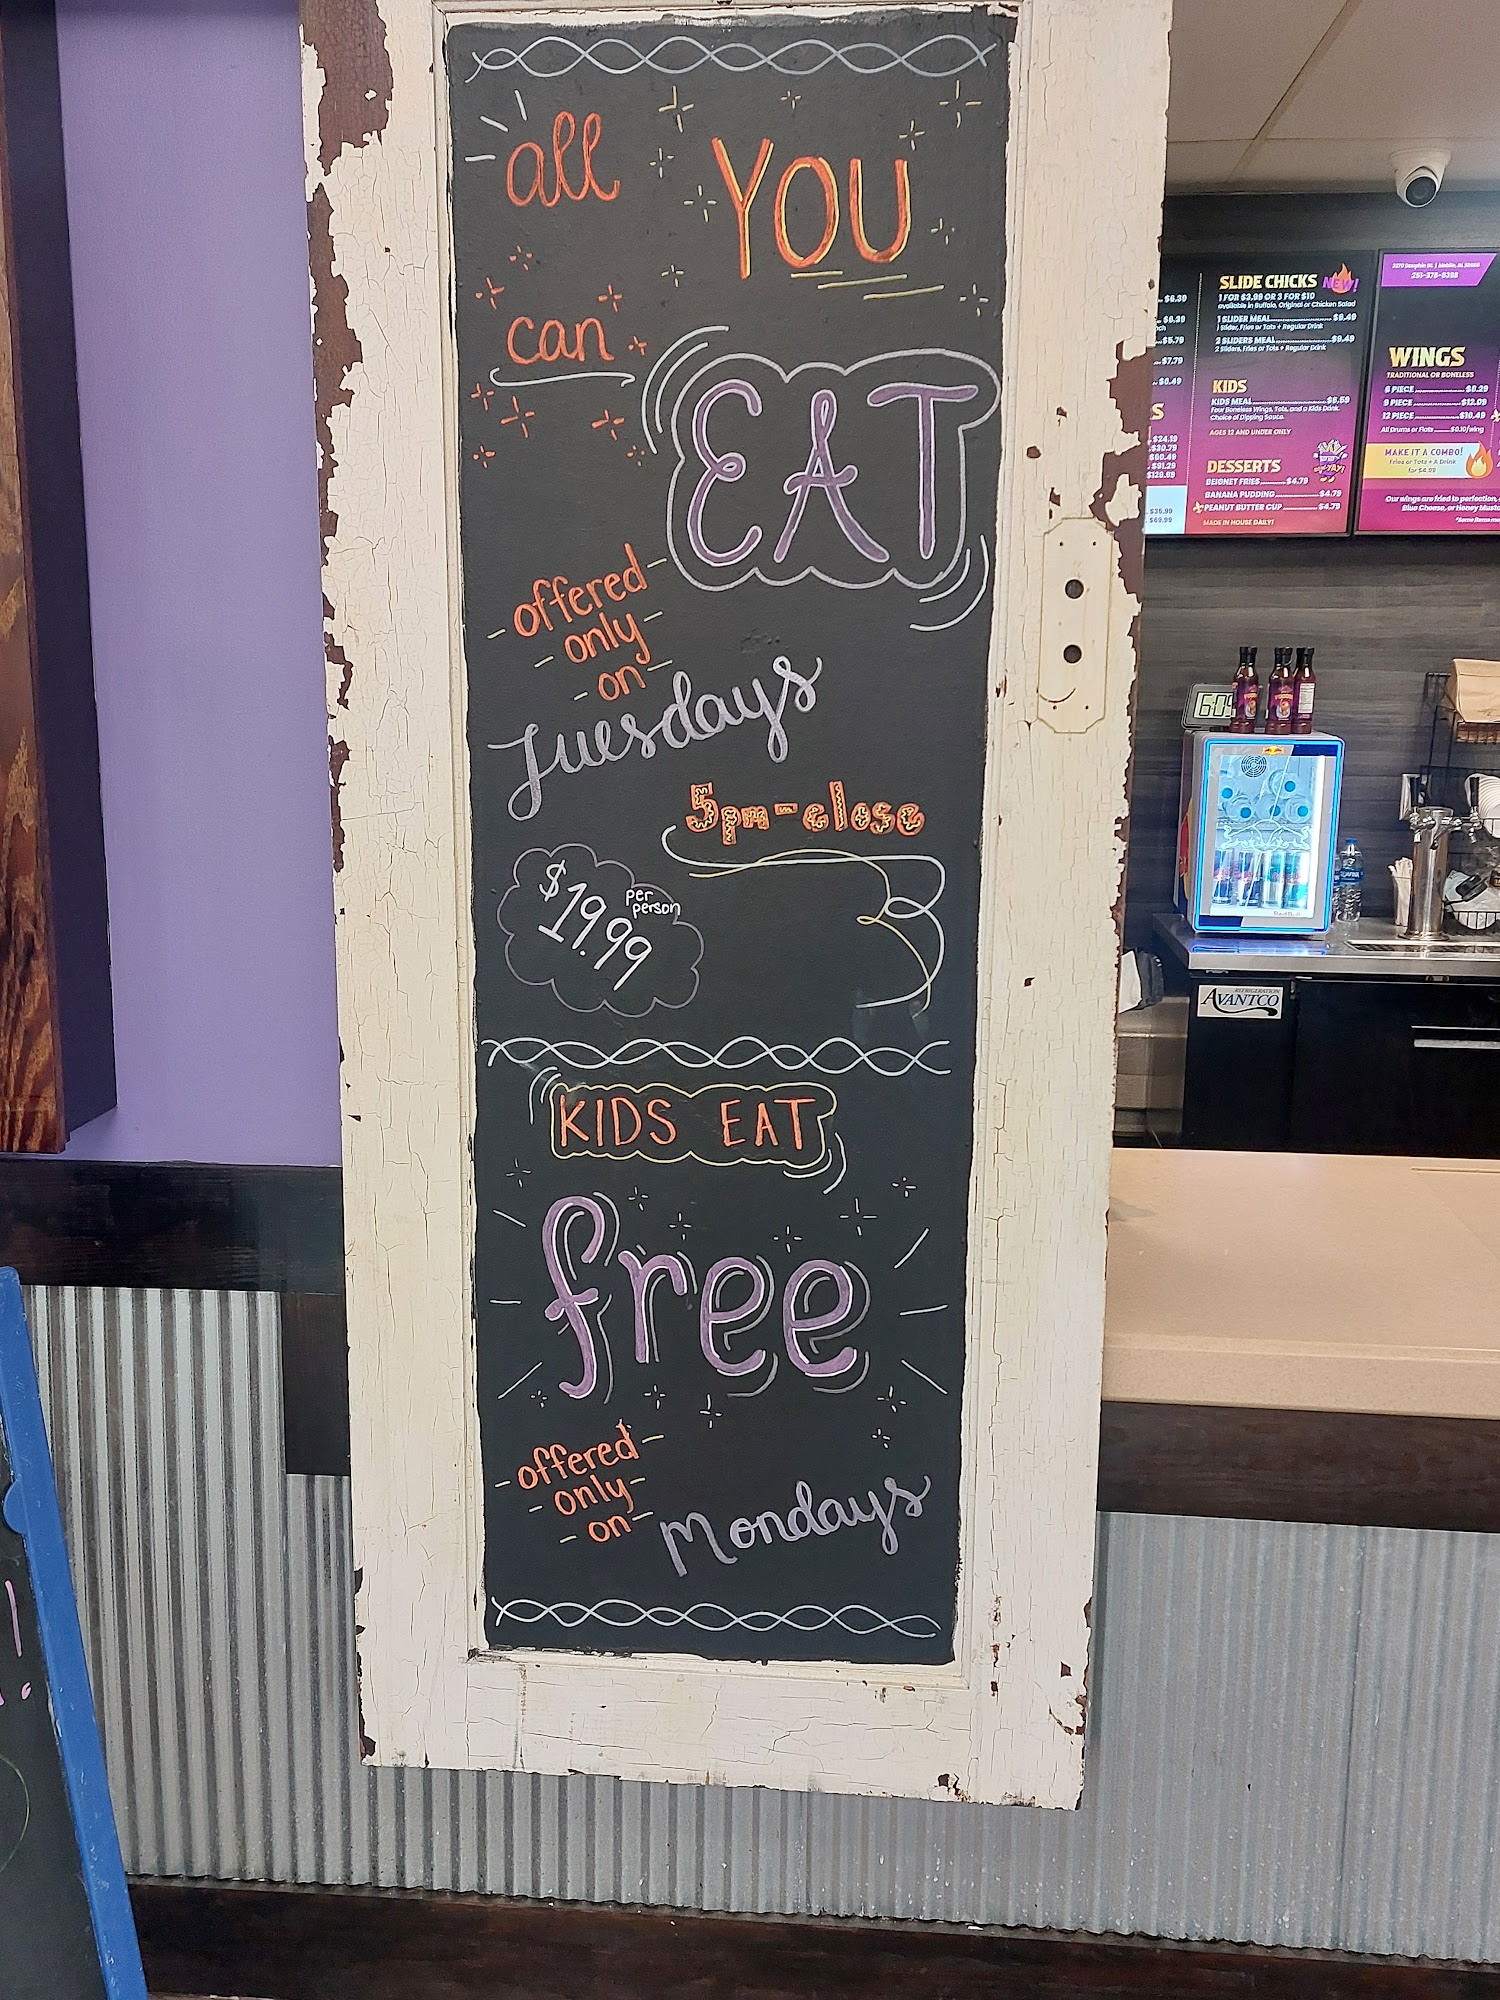 all YOU
can
EAT
offered
only
on
Tuesdays
5pm-close
$19.99 per person
KIDS EAT
free
offered
only
on
Mondays
SLIDE CHICKS NEW!
1 FOR $3.99 OR 3 FOR $10
available in Buffalo, Original or Chicken Salad
1 SLIDER MEAL $9.49
1 Slider, Fries or Tots + Regular Drink
2 SLIDERS MEAL $9.49
2 Sliders, Fries or Tots + Regular Drink
KIDS
KIDS MEAL $6.59
Four Boneless Wings, Tots, and a Kids Drink.
Choice of Dipping Sauce.
AGES 12 AND UNDER ONLY
DESSERTS
BEIGNET FRIES $4.79
BANANA PUDDING $4.79
PEANUT BUTTER CUP $4.79
MADE IN HOUSE DAILY!
251-375-6398
WINGS
TRADITIONAL OR BONELESS
6 PIECE $8.29
9 PIECE $12.09
12 PIECE
All Drums or Flats $0.10/wing
MAKE IT A COMBO!
Fries or Tots + A Drink
for $4.99
Our wings are fried to perfection,
Blue Cheese, or Honey Must
6:05
REFRIGERATION
AVANTCO
RedBull